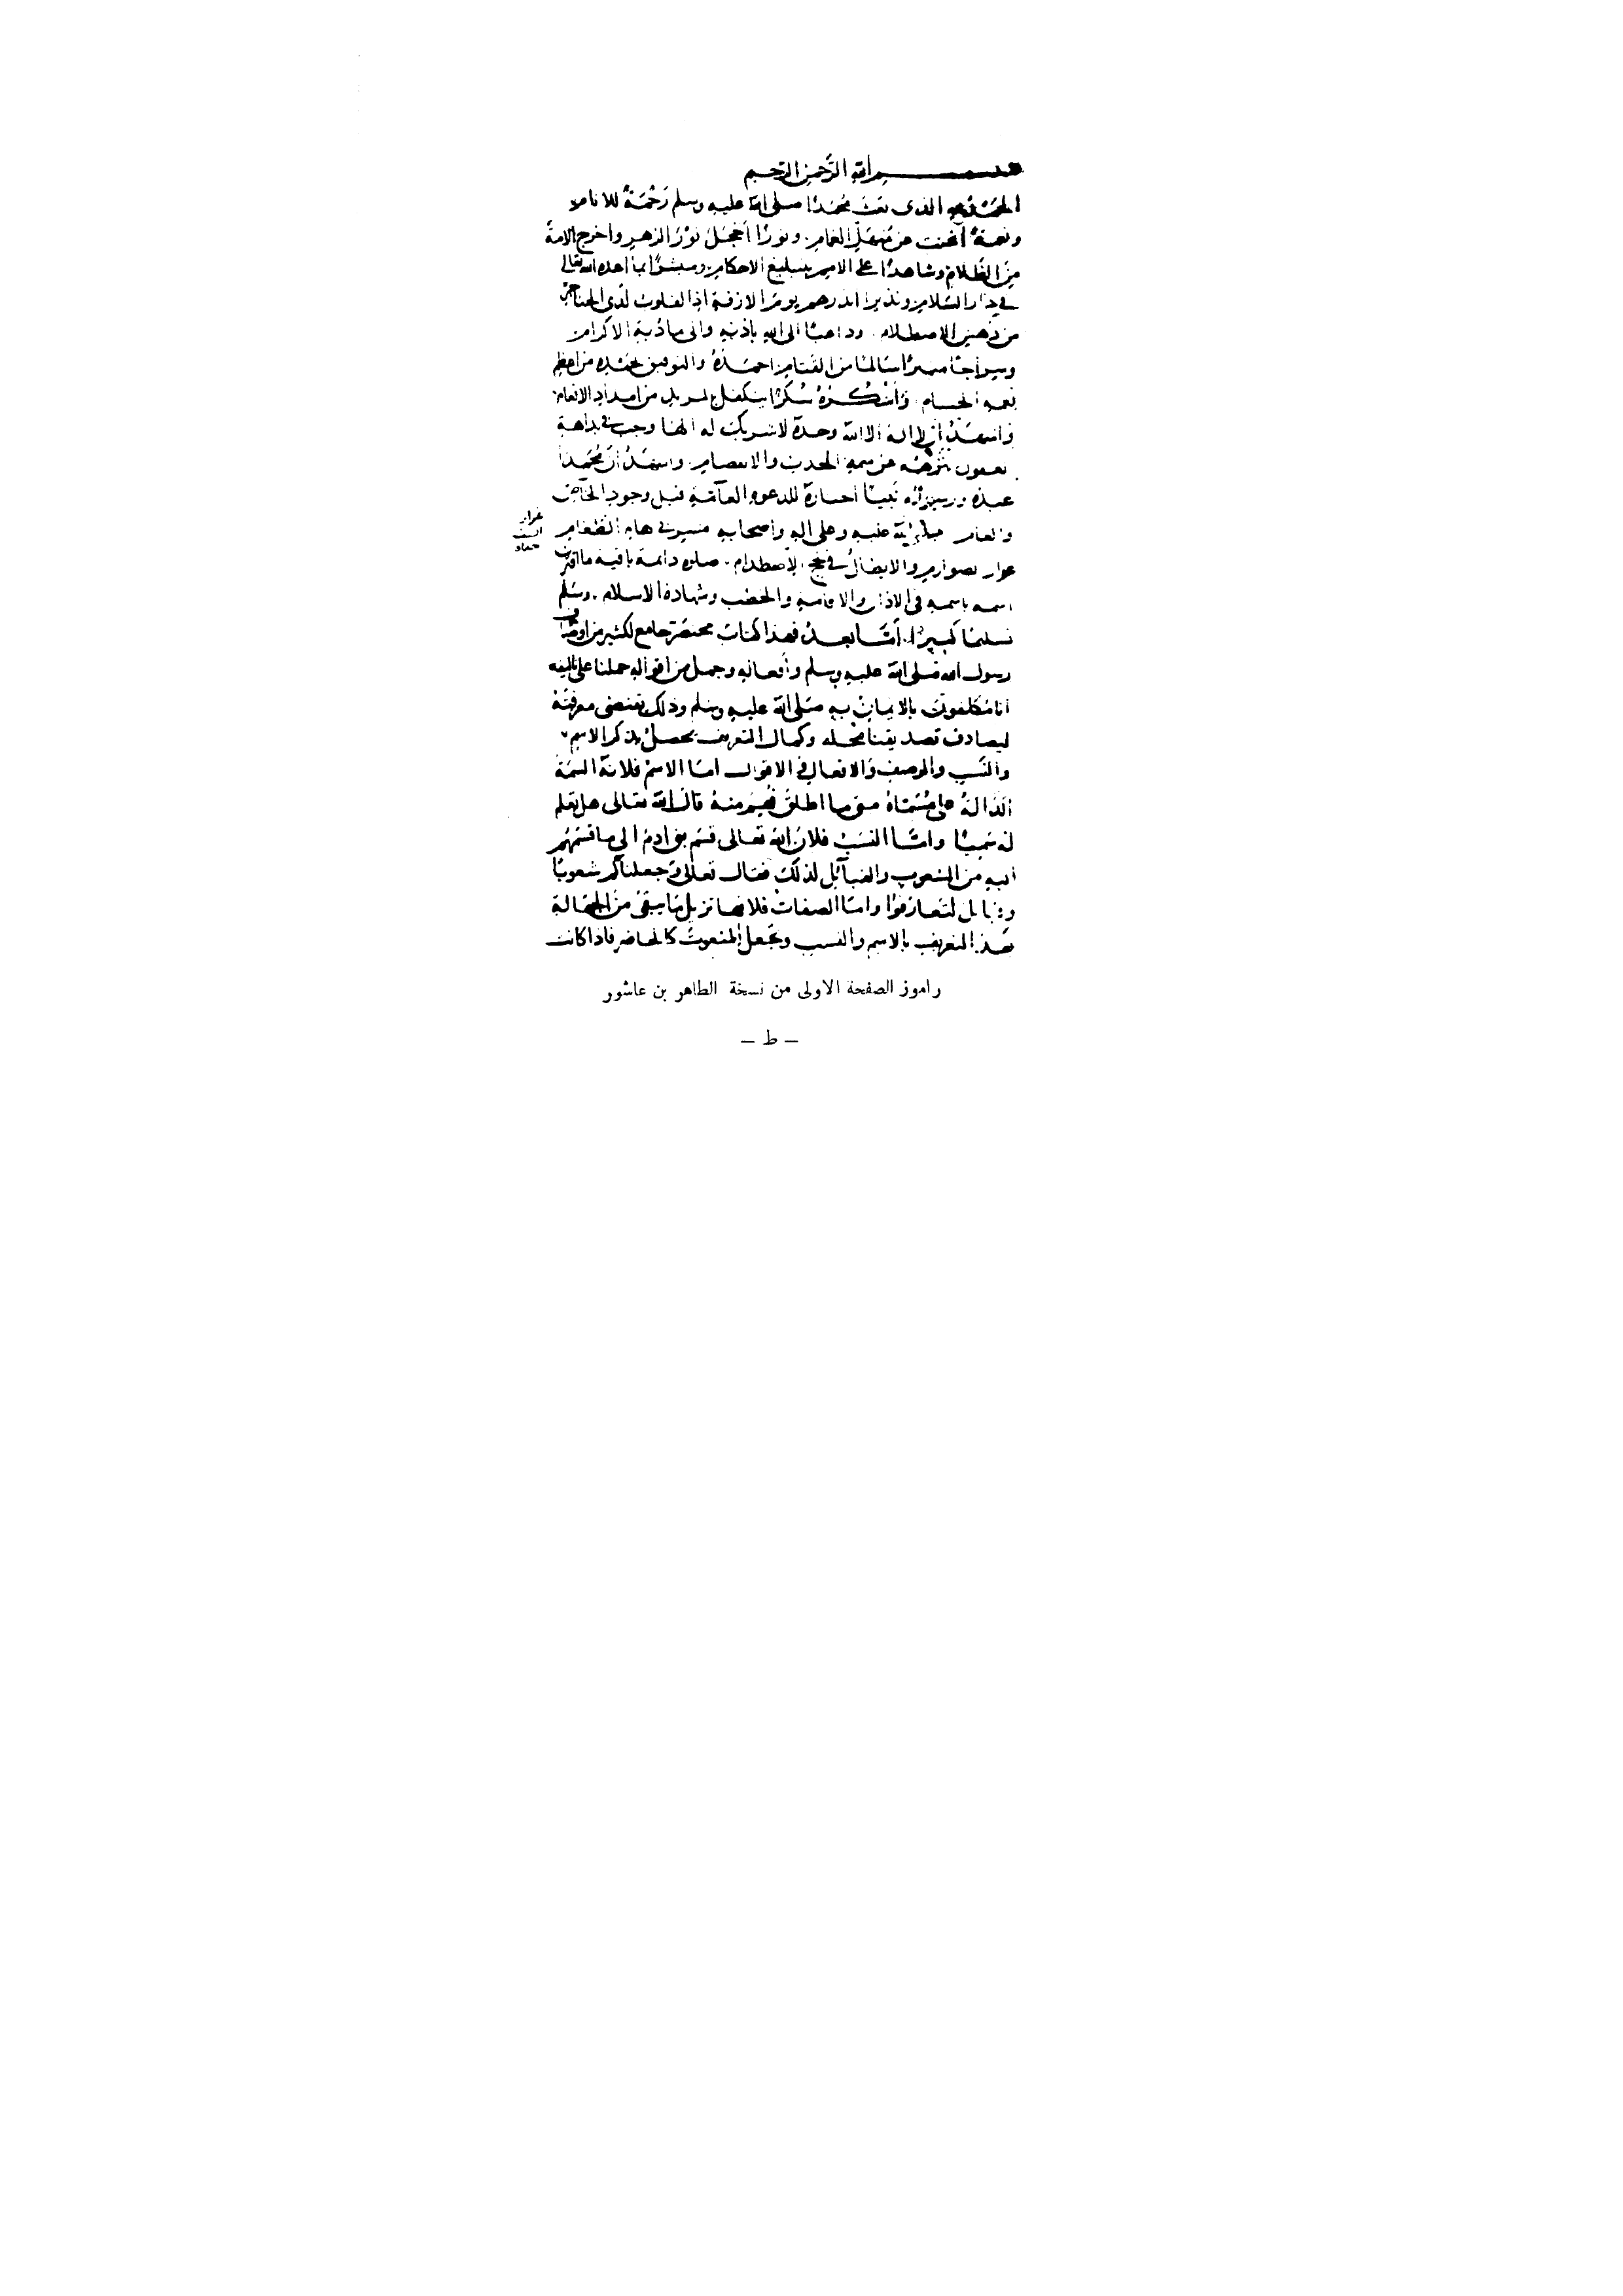 بسم الله الرحمن الرحيم
الحمد لله الذي بعث محمدا صلى الله عليه وسلم رحمة للانام
ونعمة اغنت عن منهل الغمام ونورا اخجل نور الزهر واخرج الامة
من الظلام وشاهدا على الامم بتبليغ الاحكام ومبشرا بما اعده الله تعالى
في دار السلام ونذيرا انذرهم يوم الازفة اذ القلوب لدى الحناجر
من الاصطلام وداعيا الى الله باذنه والى مادبة الاكرام
وسراجا منيرا سالما من القتام احمده والتوفيق لحمده من اعظم
نعمه الجسام واشكره شكرا يتكفل لمزيد من امداد الانعام
واشهد ان لا اله الا الله وحده لا شريك له الها وجب في بداهة
تنزهه عن سمة الحدث والانفصام واشهد ان محمدا
عبده ورسوله نبيا اختاره للدعوة العامة قبل وجود الخاص
والعام صلى الله عليه وعلى اله واصحابه في هام الطغام
غرار
السيف
حده
والابطال في الاصطدام صلوة دائمة باقية ما اقترن
اسمه باسمه في الاذان والاقامة والخطب وشهادة الاسلام وسلم
تسليما كبيرا اما بعد فهذا كتاب مختصر جامع لكثير من اوصاف
رسول الله صلى الله عليه وسلم وافعاله وجمل من اقواله حملنا على تاليفه
انا مكلفون بالايمان به صلى الله عليه وسلم وذلك يقتضي معرفته
ليصادف تصديقنا محله وكمال التعريف يحصل بذكر الاسم
والنسب والوصف والافعال في الاقوال اما الاسم فلانه السمة
الدالة على مسماه متى ما اطلق فهم منه قال الله تعالى هل تعلم
له سميا واما النسب فلان الله تعالى قسم بني ادم الى ما قسمهم
اليه من الشعوب والقبائل لذلك فقال تعالى وجعلناكم شعوبا
وقبائل لتعارفوا واما الصفات فلانها تزيل ما يبقى من الجهالة
بعد التعريف بالاسم والنسب وتجعل المنعوت كالحاضر فاذا كانت
راموز الصفحة الاولى من نسخة الطاهر بن عاشور
– ط –